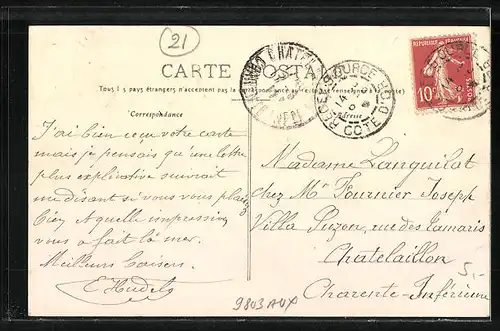 21
CARTE POSTALE
Tous les pays étrangers n'acceptent pas la correspondance au recto (se renseigner à la poste)
Correspondance
Adresse
CÔTE D'OR
RÉPUBLIQUE FRANÇAISE
10
J'ai bien reçu votre carte
mais je pensais qu'une lettre
plus explicative suivrait
me disant si vous vous plaisez
bien. Quelle impression
vous a fait la mer.
Meilleurs Baisers
Madame Languilat
chez Mr Fournier Joseph
Villa Suzon, rue des tamaris
Chatelaillon
Charente-Inférieure
5,-
9803 AUX